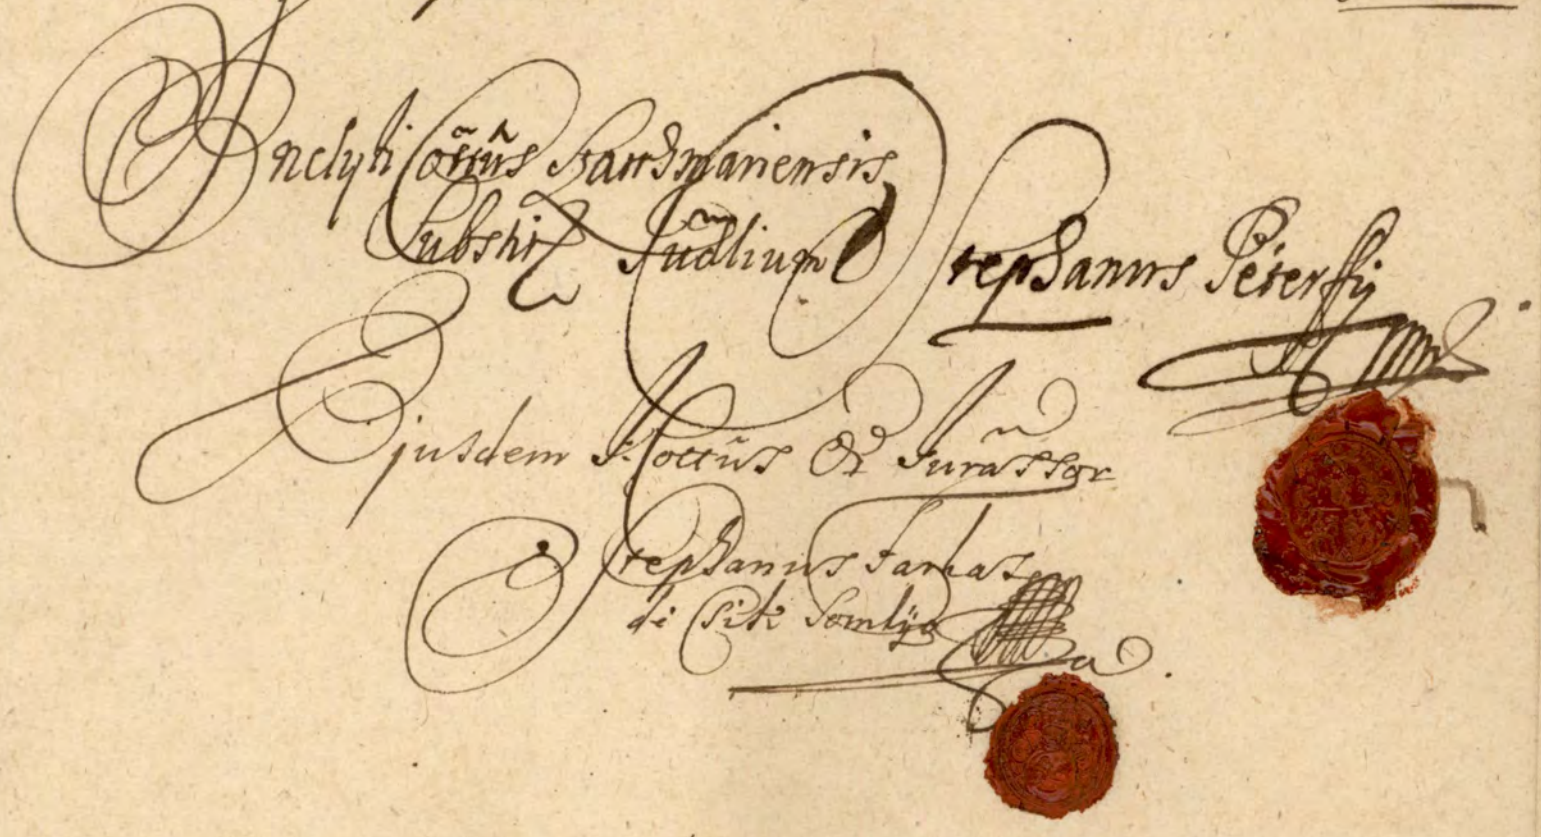 Inclyti Cottũs Szatthmariensis
Substit Judlium Stephanus Péterffij
Ejusdem I. Cottũs Or Jurassor
Stephanus Farkas
de Csik Somlyo